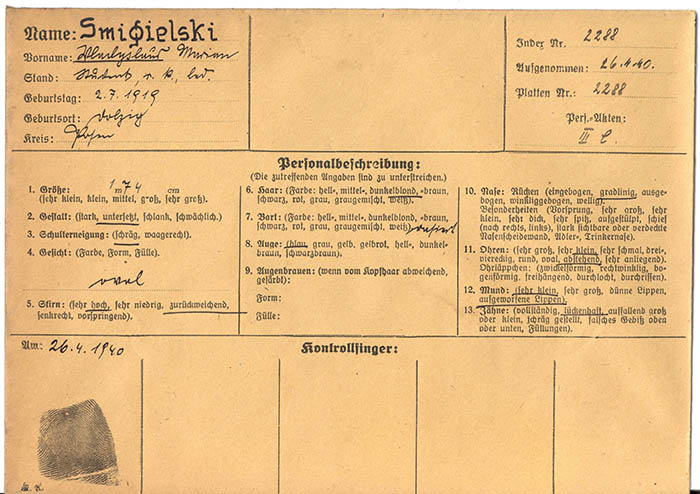 Name: Smigielski
Vorname: Wladyslaus Marian
Stand: Student, r. k., led.
Geburtstag: 2.7.1919
Geburtsort: Dolzig
Kreis: Posen
Index Nr. 2288
Aufgenommen: 26.4.40.
Platten Nr.: 2288
Pers.-Akten:
III C.
Personalbeschreibung:
(Die zutreffenden Angaben sind zu unterstreichen.)
1. Größe: 1 m 74 cm
(sehr klein, klein, mittel, groß, sehr groß).
2. Gestalt: (stark, untersetzt, schlank, schwächlich).
3. Schulterneigung: (schräg, waagerecht).
4. Gesicht: (Farbe, Form, Fülle).
oval
5. Stirn: (sehr hoch, sehr niedrig, zurückweichend,
senkrecht, vorspringend).
6. Haar: (Farbe: hell-, mittel-, dunkelblond, -braun,
schwarz, rot, grau, graugemischt, weiß).
7. Bart: (Farbe: hell-, mittel-, dunkelblond, -braun,
schwarz, rot, grau, graugemischt, weiß) rasiert
8. Auge: (blau, grau, gelb, gelbrot, hell-, dunkel-
braun, schwarzbraun).
9. Augenbrauen: (wenn vom Kopfhaar abweichend,
gefärbt):
Form:
Fülle:
10. Nase: Rücken (eingebogen, gradlinig, ausge-
bogen, winkliggebogen, wellig).
Besonderheiten (Vorsprung, sehr groß, sehr
klein, sehr dick, sehr spitz, aufgestülpt, schief
(nach rechts, links), stark sichtbare oder verdeckte
Nasenscheidewand, Adler-, Trinkernase).
11. Ohren: (sehr groß, sehr klein, sehr schmal, drei-,
viereckig, rund, oval, abstehend, sehr anliegend).
Ohrläppchen: (zwickelförmig, rechtwinklig, bo-
genförmig, freihängend, durchlocht, durchrissen).
12. Mund: (sehr klein, sehr groß, dünne Lippen,
aufgeworfene Lippen).
13. Zähne: (vollständig, lückenhaft, auffallend groß
oder klein, schräg gestellt, falsches Gebiß oben
oder unten, Füllungen).
Am: 26.4.1940
Kontrollfinger: